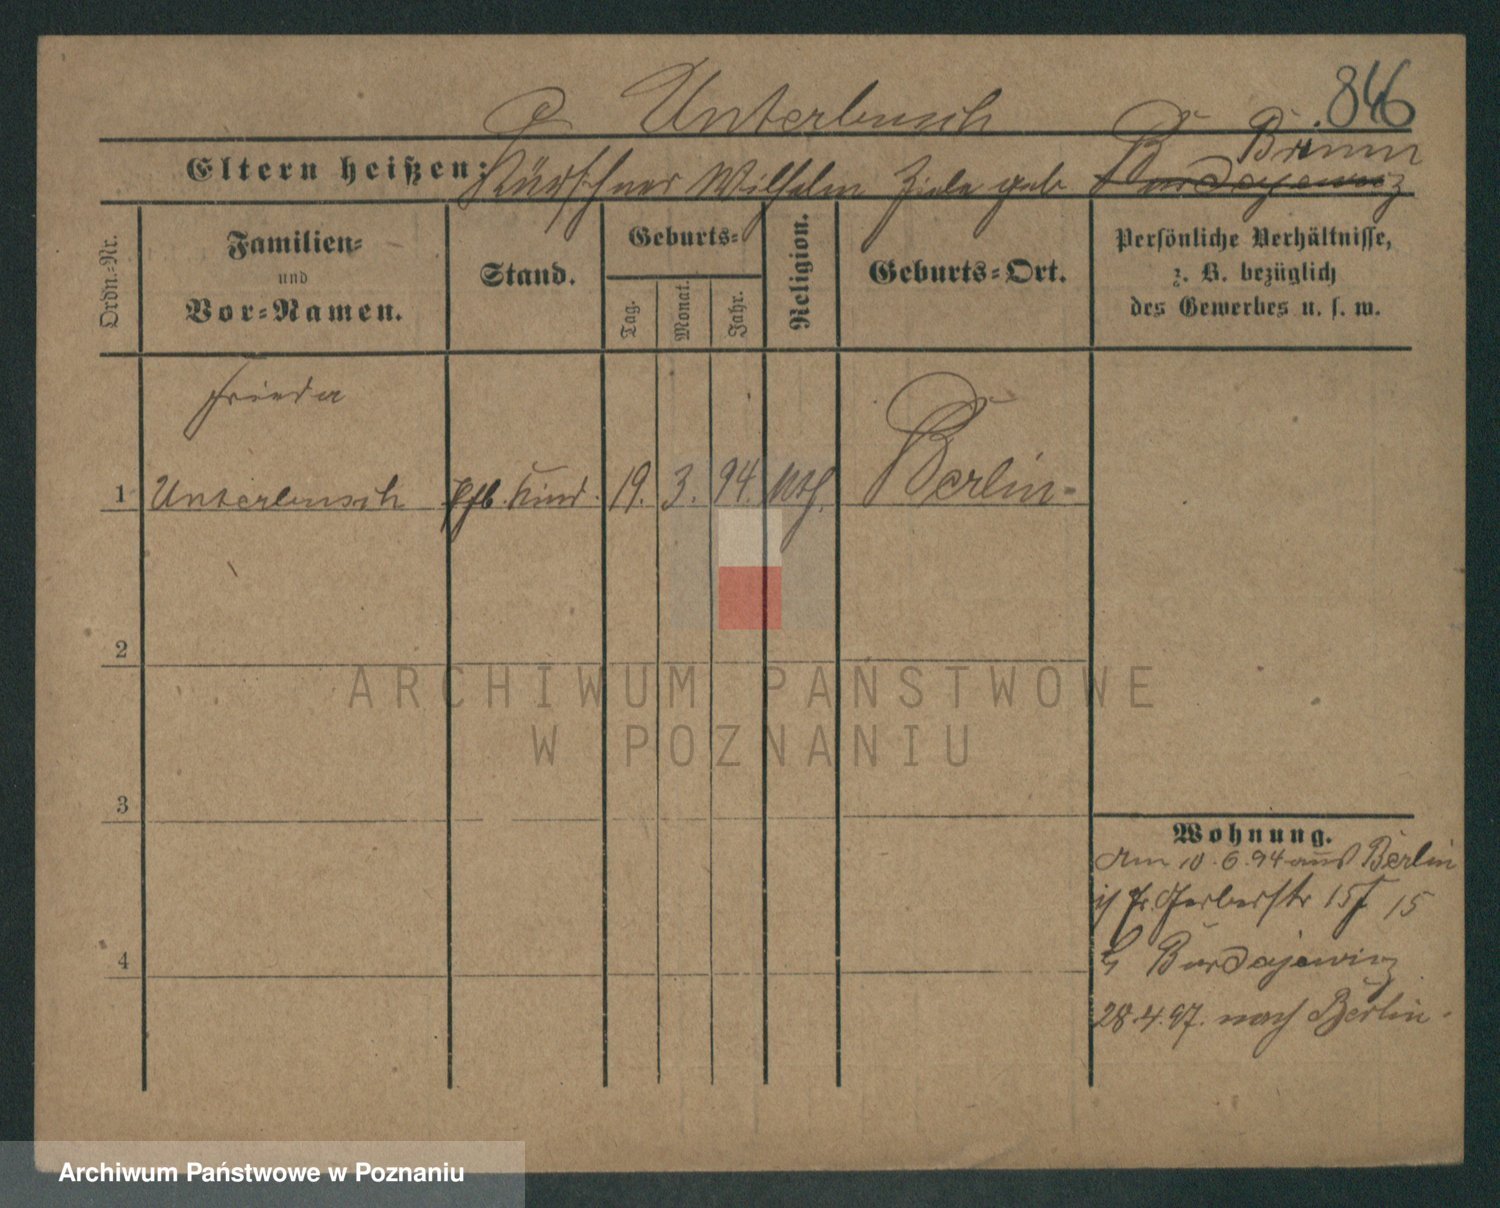 846
Unterbusch
Brünn
Eltern heißen: Kürschner Wilhelm geb. Burdajewicz
Ordn.-Nr.
Familien-
und
Vor-Namen.
Stand.
Geburts-
Tag.
Monat.
Jahr.
Religion.
Geburts-Ort.
Persönliche Verhältnisse,
z. B. bezüglich
des Gewerbes u. s. w.
Frieda
1 Unterbusch Pfl. Kind. 19. 3. 94. Berlin
2
3
4
Wohnung.
Am 10.6.94 aus Berlin
Gerberstr 15
b Burdajewicz
28.4.97. nach Berlin.
ARCHIWUM PAŃSTWOWE
W POZNANIU
Archiwum Państwowe w Poznaniu